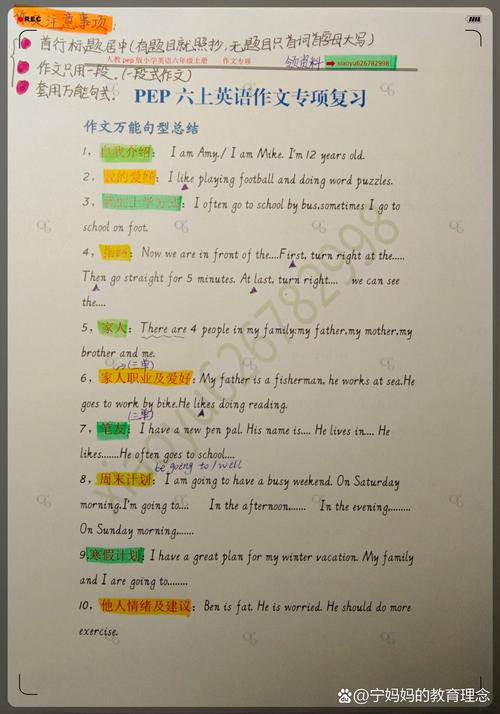 作文注意事项:
REC
首行标题居中(有题目就照抄,无题目只首词首字母大写)
人教 pep 版小学英语六年级上册 作文专项
领资料 xiaoyu626782998
作文只用一段.(一段式作文)
套用万能句式.
PEP 六上英语作文专项复习
作文万能句型总结
1, 自我介绍: I am Amy./ I am Mike. I'm 12 years old.
2, 我的爱好: I like playing football and doing word puzzles.
3, 我的上学方式: I often go to school by bus,sometimes I go to
school on foot.
4, 指路: Now we are in front of the....First, turn right at the.....
Then go straight for 5 minutes. At last, turn right.... we can see
the....
5, 家人: There are 4 people in my family:my father,my mother,my
brother and me.
(三单)
6, 家人职业及爱好: My father is a fisherman, he works at sea.He
goes to work by bike.He likes doing reading.
(三单)
7, 笔友: I have a new pen pal. His name is.... He lives in.... He
likes......He often goes to school....
be going to / will
8, 周末计划: I am going to have a busy weekend. On Saturday
morning,I'm going to.... In the afternoon....... In the evening........
On Sunday morning,......
9,寒假计划: I have a great plan for my winter vacation. My family
and I are going to........
10, 他人情绪及建议: Ben is fat. He is worried. He should do more
exercise.
xiaoyu626782998
百家号@宁妈妈的教育理念